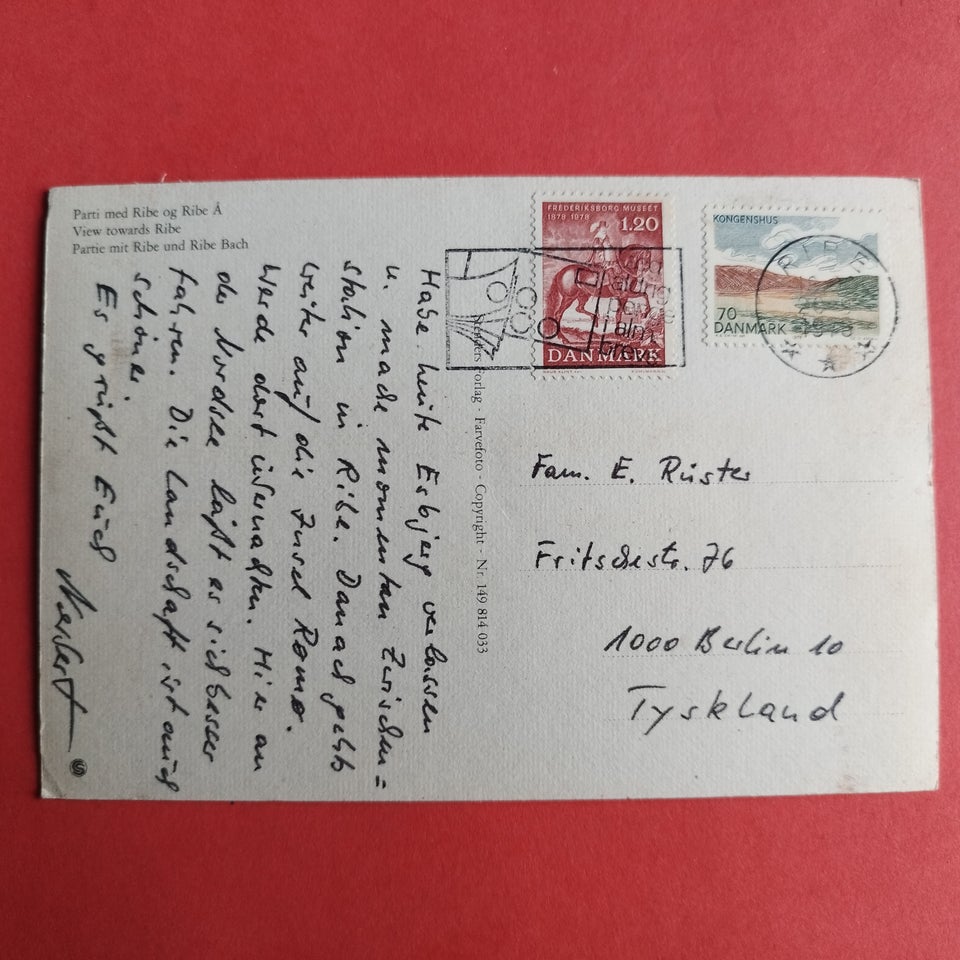 Parti med Ribe og Ribe Å
View towards Ribe
Partie mit Ribe und Ribe Bach
Habe heute Esbjerg verlassen
u. mache momentan Zwischen=
station in Ribe. Danach geht's
weiter auf die Insel Rømø.
Werde dort übernachten. Hier an
der Nordsee läßt es sich besser
fahren. Die Landschaft ist auch
schöner.
Es grüßt Euch
Forlag · Farvefoto - Copyright - Nr. 149 814 033
FREDERIKSBORG MUSEET
1878 1978
1.20
DANMARK
KONGENSHUS
70
DANMARK
RIBE
aldrig
penge
i alm.
breve
Fam. E. Rüster
Fritschestr. 76
1000 Berlin 10
Tyskland